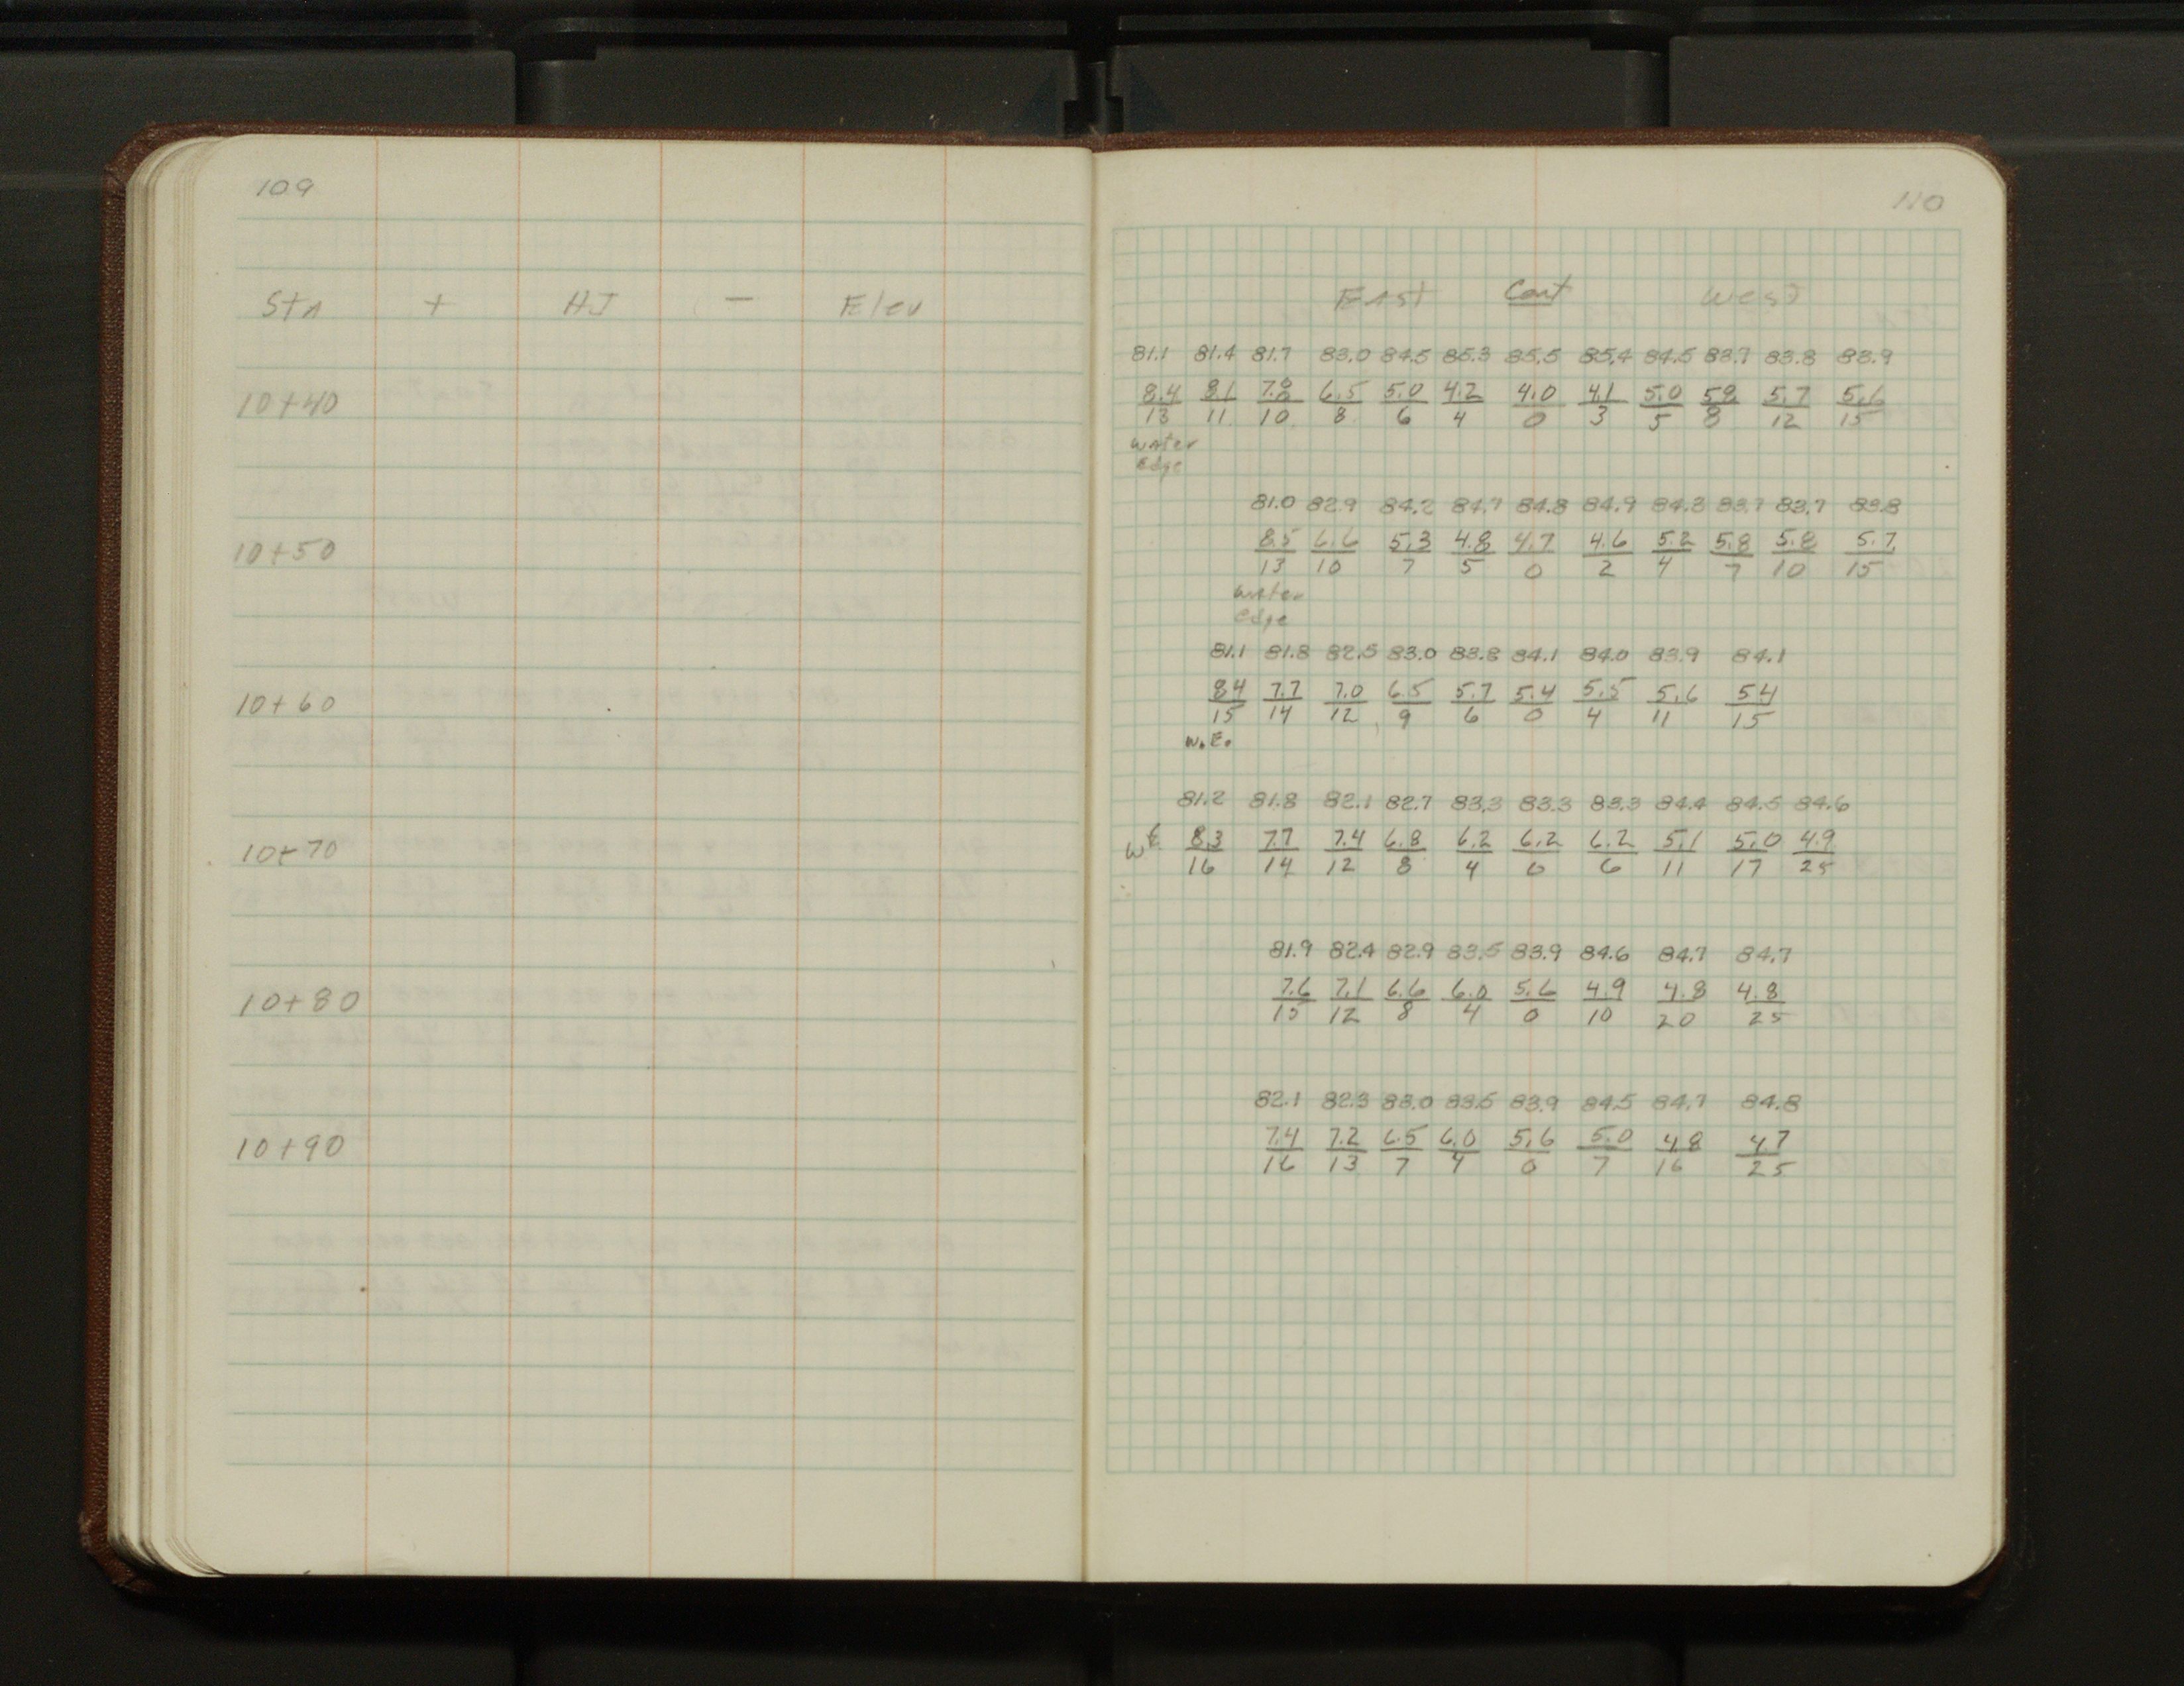 109
110
Sta + HI - Elev
East Cent West
81.1 81.4 81.7 83.0 84.5 85.3 85.5 85.4 84.5 83.7 83.8 83.9
10+40
8.4 8.1 7.8 6.5 5.0 4.2 4.0 4.1 5.0 5.8 5.7 5.6
13 11 10 8 6 4 0 3 5 8 12 15
water
Edge
81.0 82.9 84.2 84.7 84.8 84.9 84.3 83.7 83.7 83.8
10+50
8.5 6.6 5.3 4.8 4.7 4.6 5.2 5.8 5.8 5.7
13 10 7 5 0 2 4 7 10 15
water
edge
81.1 81.8 82.5 83.0 83.8 84.1 84.0 83.9 84.1
10+60
8.4 7.7 7.0 6.5 5.7 5.4 5.5 5.6 5.4
15 14 12 9 6 0 4 11 15
W.E.
81.2 81.8 82.1 82.7 83.3 83.3 83.3 84.4 84.5 84.6
10+70
WE 8.3 7.7 7.4 6.8 6.2 6.2 6.2 5.1 5.0 4.9
16 14 12 8 4 0 6 11 17 25
81.9 82.4 82.9 83.5 83.9 84.6 84.7 84.7
10+80
7.6 7.1 6.6 6.0 5.6 4.9 4.8 4.8
15 12 8 4 0 10 20 25
82.1 82.3 83.0 83.5 83.9 84.5 84.7 84.8
10+90
7.4 7.2 6.5 6.0 5.6 5.0 4.8 4.7
16 13 7 4 0 7 16 25